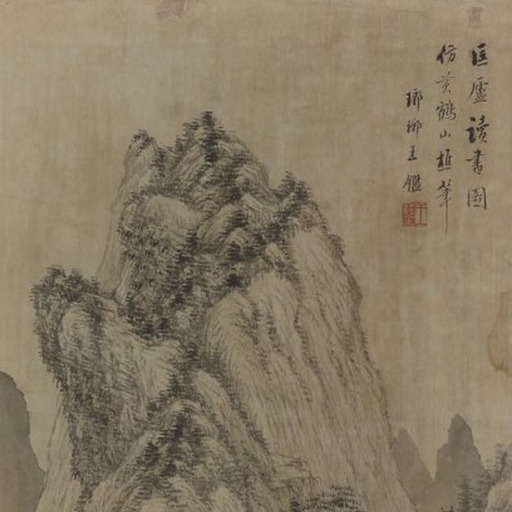 匡廬讀書圖
仿黃鶴山樵筆
瑯琊王鑑